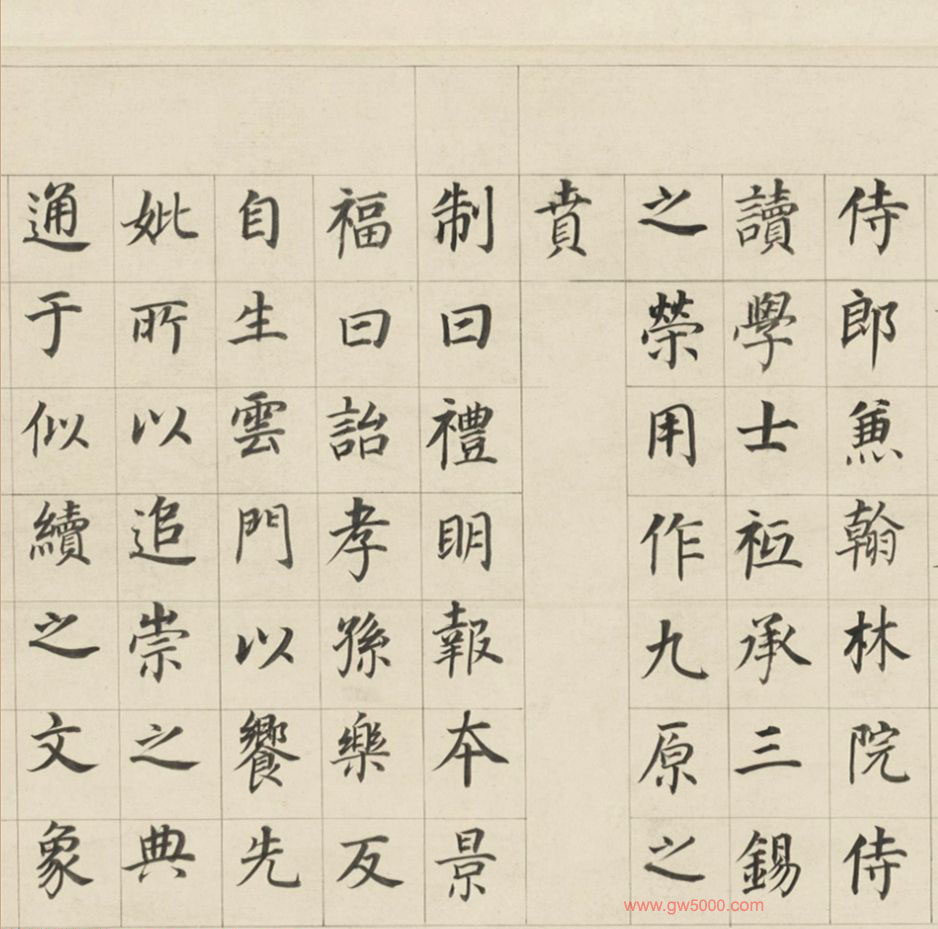 侍郎兼翰林院侍
讀學士祗承三錫
之榮用作九原之
賁
制曰禮明報本景
福曰詒孝孫樂反
自生雲門以饗先
妣所以追崇之典
通于似續之文象
www.gw5000.com